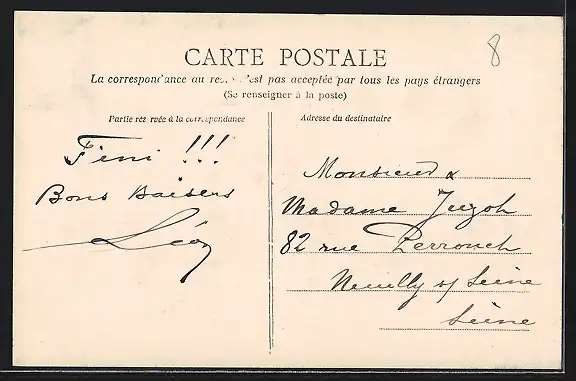 8
CARTE POSTALE
La correspondance au recto n'est pas acceptée par tous les pays étrangers
(Se renseigner à la poste)
Partie réservée à la correspondance
Adresse du destinataire
Fini !!!
Bons Baisers
Léon
Monsieur &
Madame
82 rue Perronet
Neuilly s/ Seine
Seine